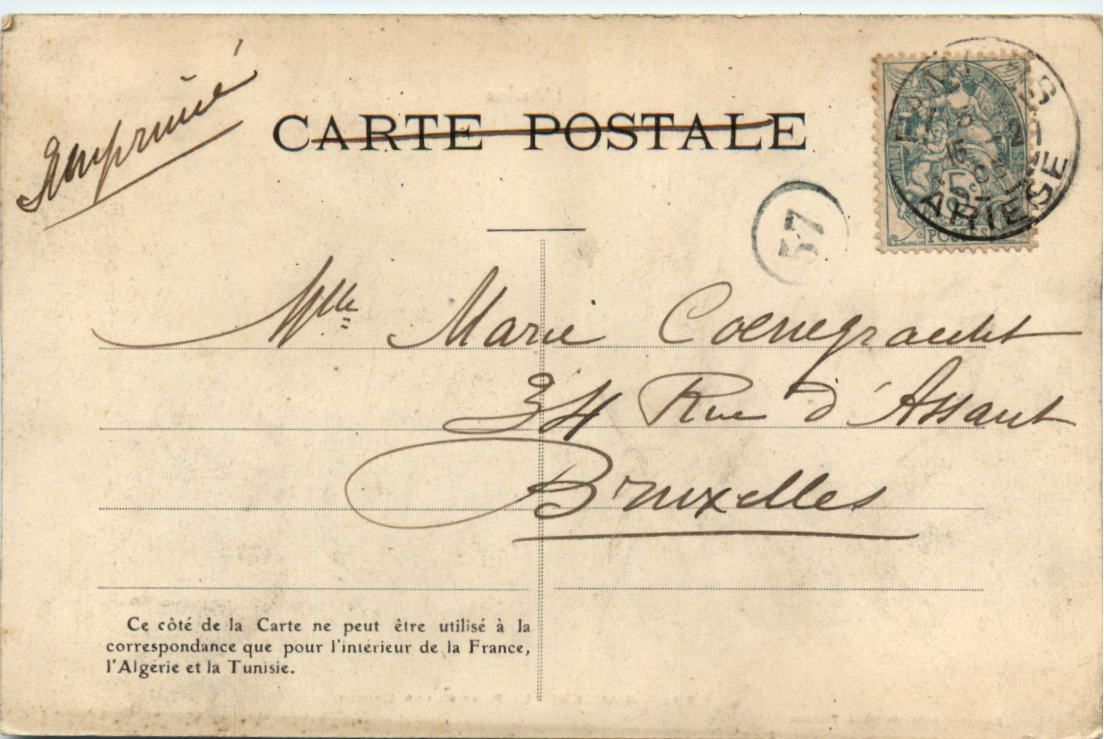 Imprimé
CARTE POSTALE
57
ARIEGE
5
POSTES
Mlle Marie Coenegracht
34 Rue d'Assaut
Bruxelles
Ce côté de la Carte ne peut être utilisé à la
correspondance que pour l'intérieur de la France,
l'Algérie et la Tunisie.